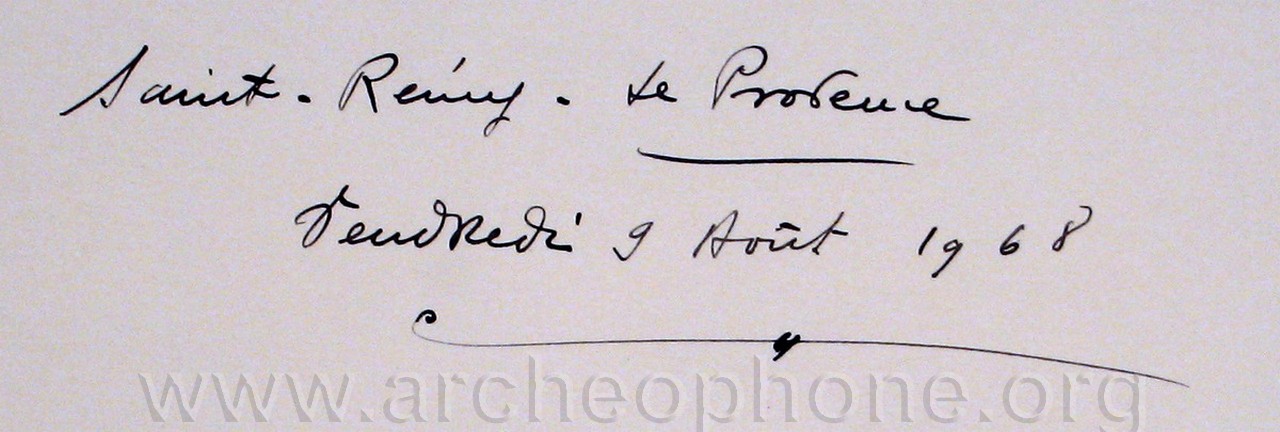 Saint-Rémy-de Provence
Vendredi 9 Août 1968
www.archeophone.org